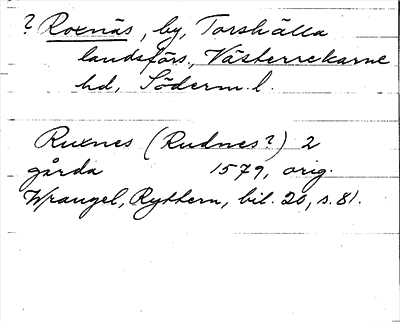 ? Roxnäs, by, Torshälla
landsförs., Västerrekarne
hd, Söderm. l.
Ruxnes (Rudnes?) 2
gårda 1579, orig.
Wrangel, Rythern, bil. 20, s. 81.